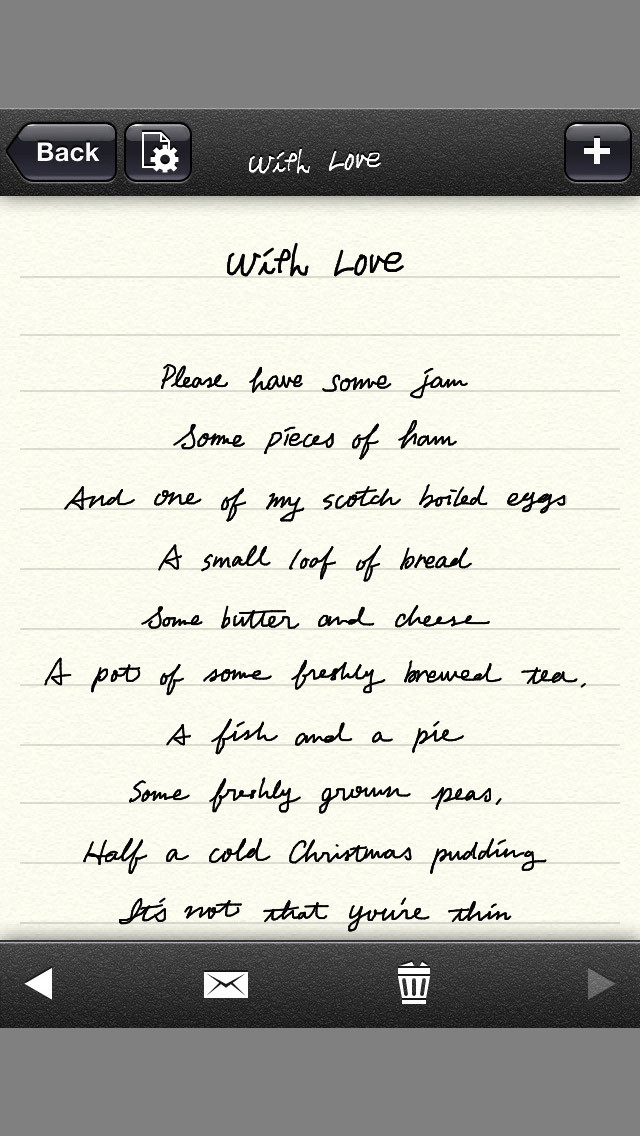 Back
With Love
With Love
Please have some jam
Some pieces of ham
And one of my scotch boiled eggs
A small loaf of bread
Some butter and cheese
A pot of some freshly brewed tea,
A fish and a pie
Some freshly grown peas,
Half a cold Christmas pudding
It's not that you're thin